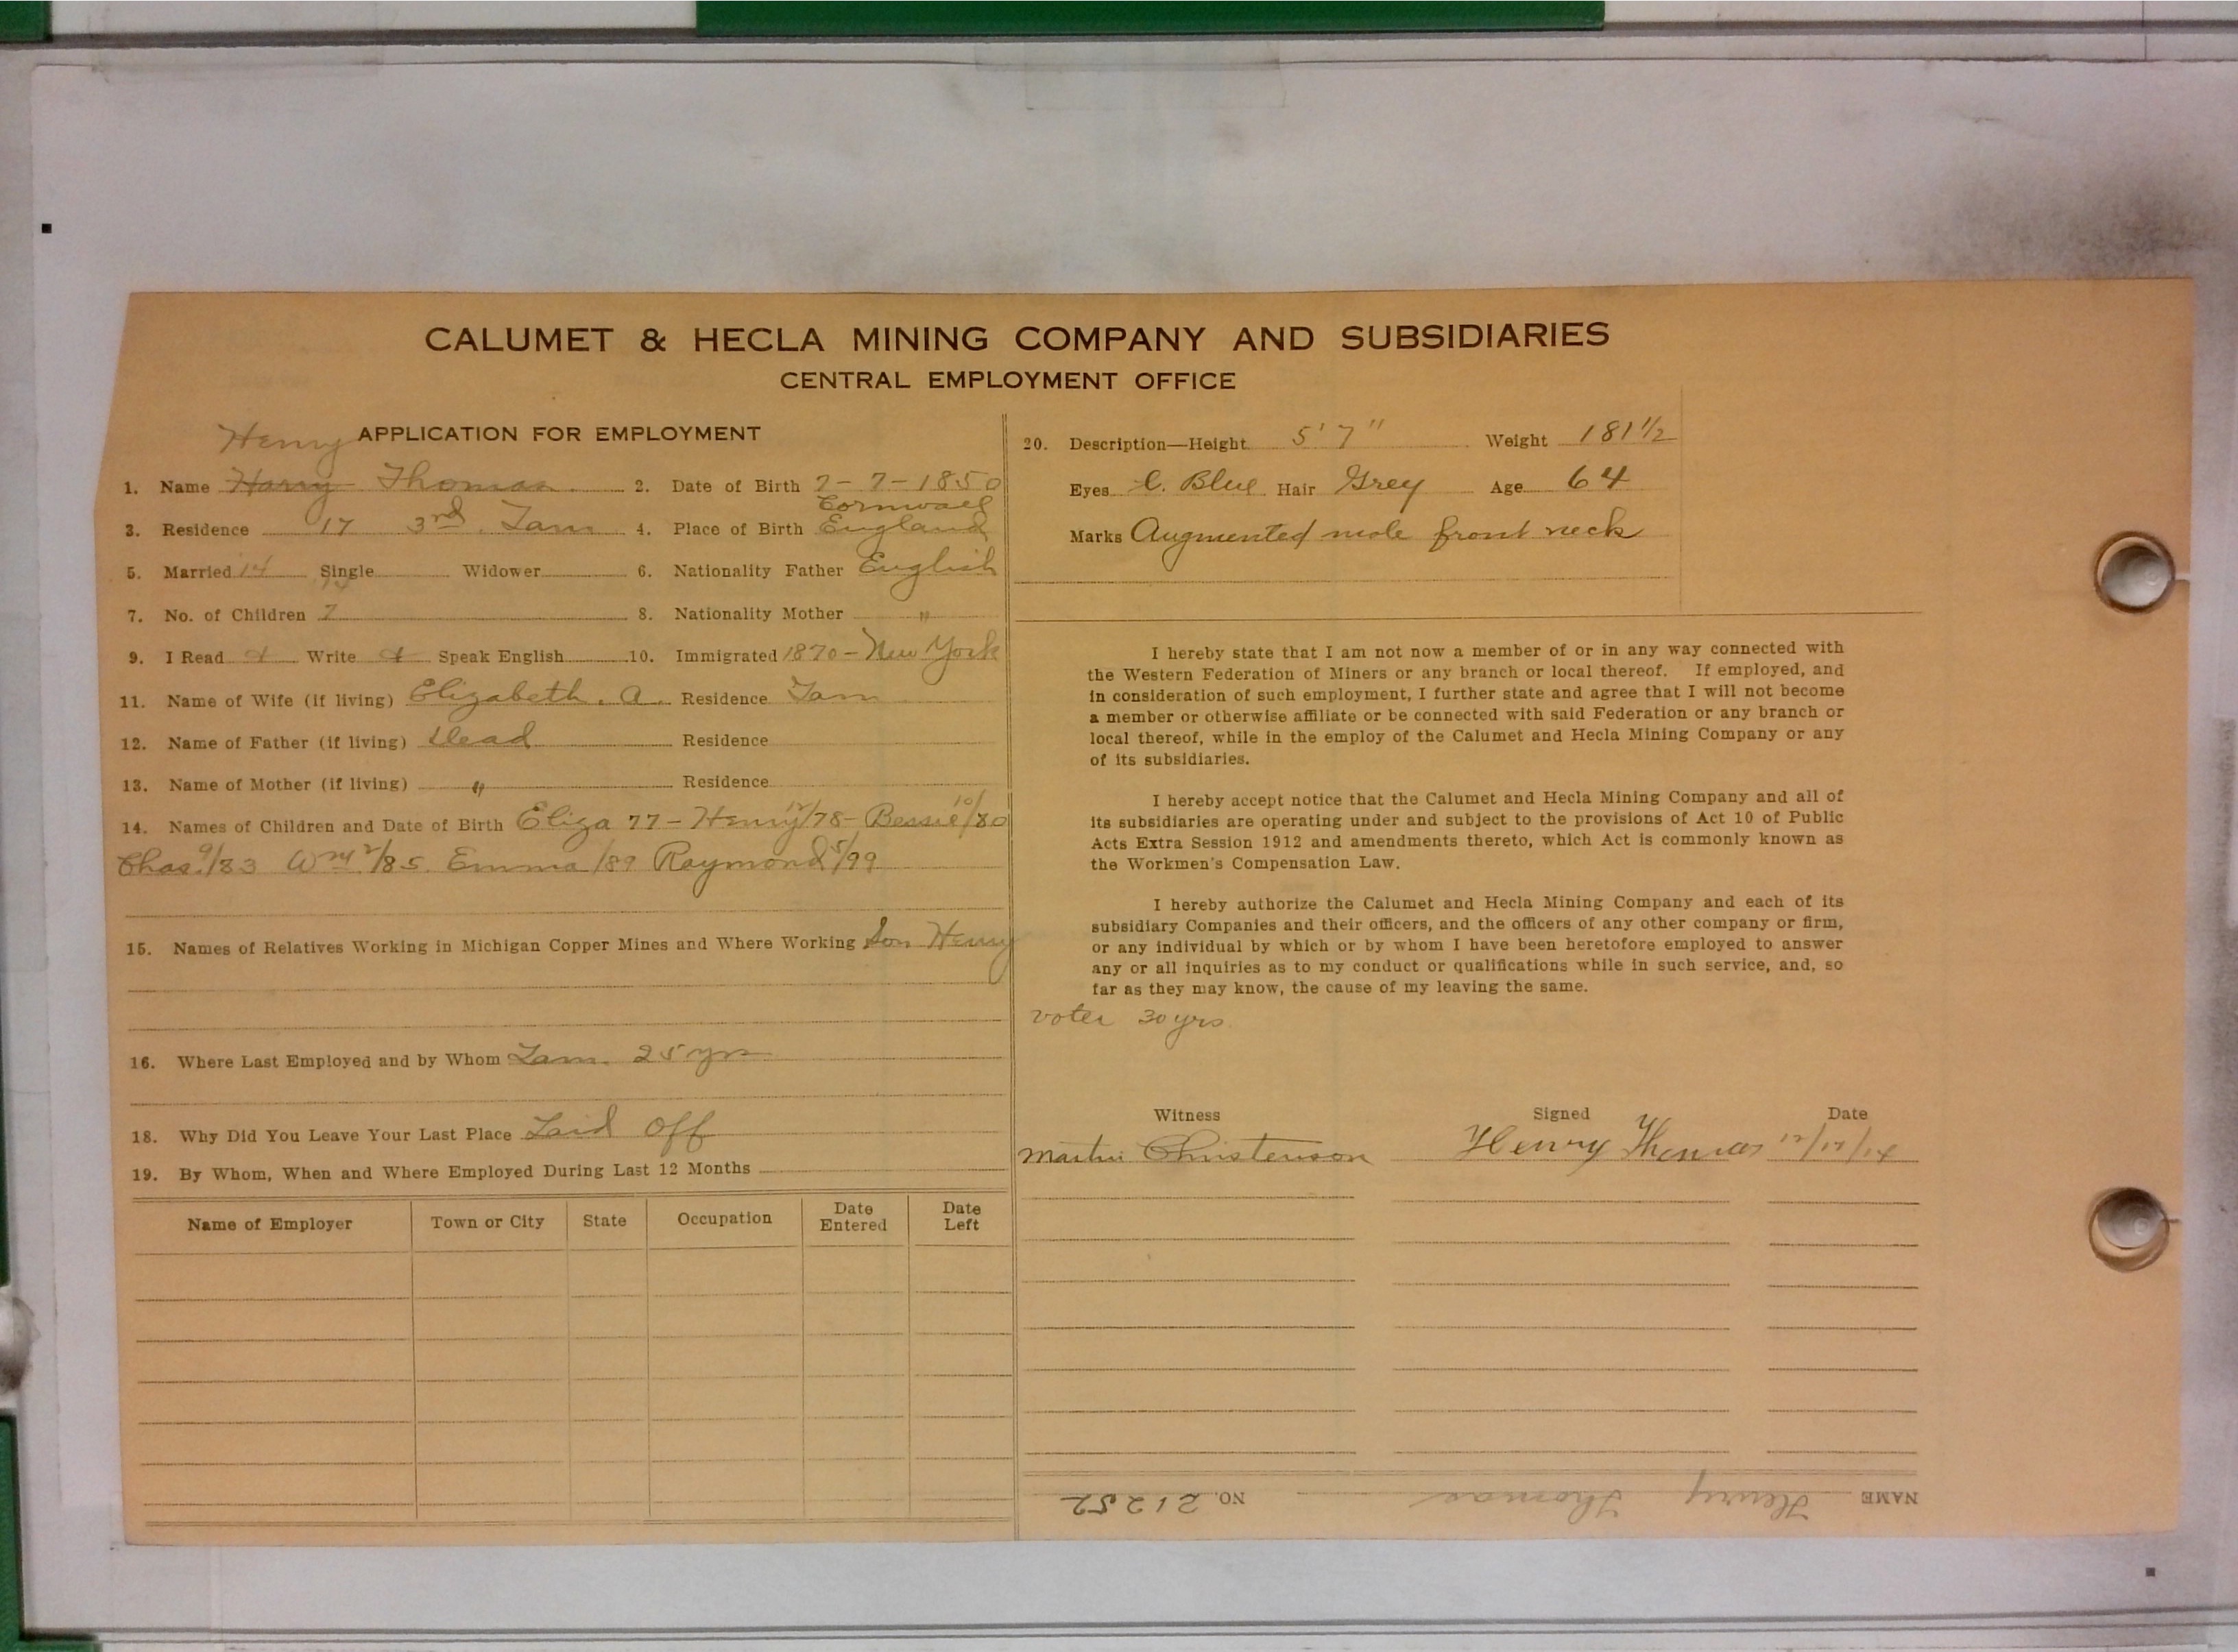 CALUMET & HECLA MINING COMPANY AND SUBSIDIARIES
CENTRAL EMPLOYMENT OFFICE
Henry APPLICATION FOR EMPLOYMENT
1. Name Harry Thomas 2. Date of Birth 7-7-1850
Cornwall
3. Residence 17 3rd. Tam 4. Place of Birth England
5. Married 14 Single Widower 6. Nationality Father English
7. No. of Children 7 8. Nationality Mother "
9. I Read Write Speak English 10. Immigrated 1870 - New York
11. Name of Wife (if living) Elizabeth. A. Residence Tam
12. Name of Father (if living) Dead Residence
13. Name of Mother (if living) " Residence
14. Names of Children and Date of Birth Eliza 77 - Henry 12/78 - Bessie 10/80
Chas. 9/83 Wm. 2/85. Emma /89 Raymond 5/99
15. Names of Relatives Working in Michigan Copper Mines and Where Working Son Henry
16. Where Last Employed and by Whom Tam. 25 yrs
18. Why Did You Leave Your Last Place Laid Off
19. By Whom, When and Where Employed During Last 12 Months
Name of Employer Town or City State Occupation Date Entered Date Left
20. Description—Height 5' 7" Weight 181 1/2
Eyes C. Blue Hair Grey Age 64
Marks Augmented mole front neck
I hereby state that I am not now a member of or in any way connected with
the Western Federation of Miners or any branch or local thereof. If employed, and
in consideration of such employment, I further state and agree that I will not become
a member or otherwise affiliate or be connected with said Federation or any branch or
local thereof, while in the employ of the Calumet and Hecla Mining Company or any
of its subsidiaries.
I hereby accept notice that the Calumet and Hecla Mining Company and all of
its subsidiaries are operating under and subject to the provisions of Act 10 of Public
Acts Extra Session 1912 and amendments thereto, which Act is commonly known as
the Workmen's Compensation Law.
I hereby authorize the Calumet and Hecla Mining Company and each of its
subsidiary Companies and their officers, and the officers of any other company or firm,
or any individual by which or by whom I have been heretofore employed to answer
any or all inquiries as to my conduct or qualifications while in such service, and, so
far as they may know, the cause of my leaving the same.
voter 30 yrs
Witness Signed Date
Martin Christenson Henry Thomas 12/12/14
NAME Henry Thomas NO. 21252